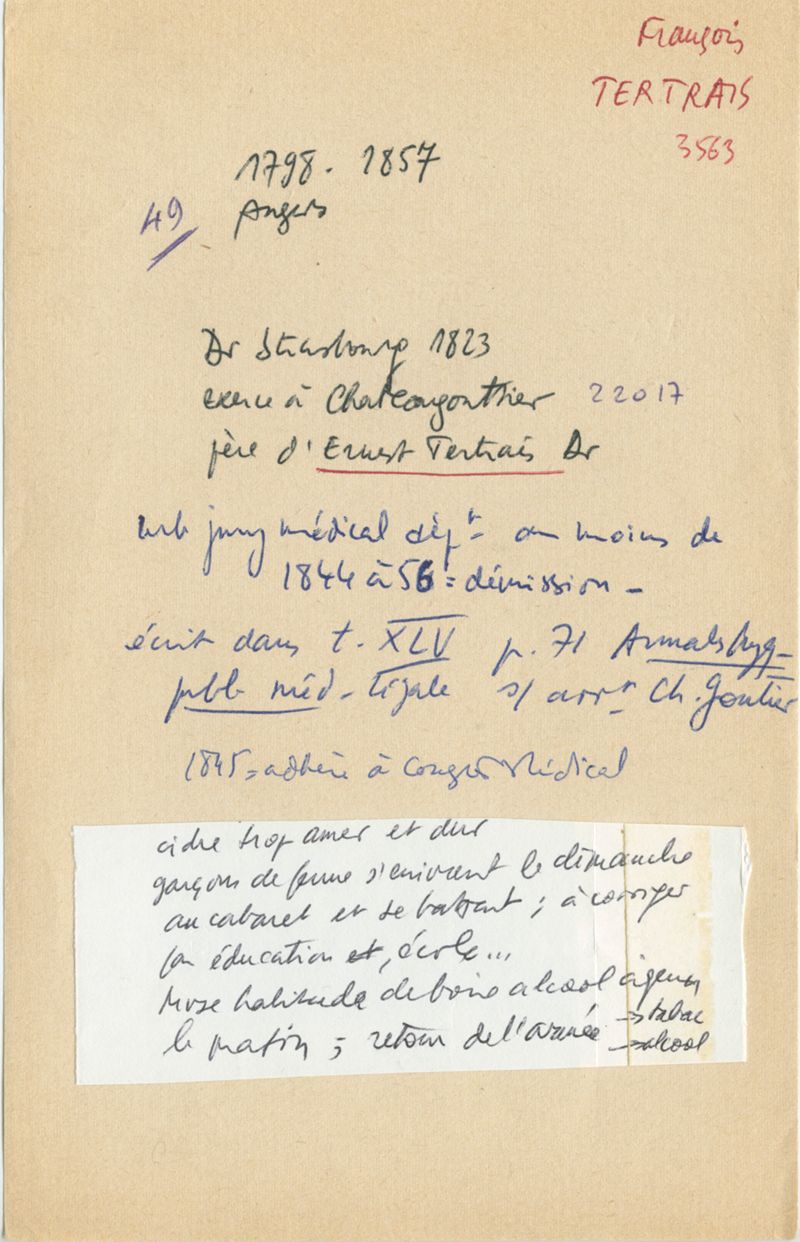 François
TERTRAIS
3563
1798. 1857
49 Angers
Dr Strasbourg 1823
exerce à Chateaugonthier 22017
père d'Ernest Tertrais Dr
mb jury médical dépt = au moins de
1844 à 56 = démission -
écrit dans t. XLV p. 71 Annales hyg-
publ. méd-légale s/ arrt Ch. Gontier
1845 = adhère à Congrès Médical
cidre trop amer et dur
garçons de ferme s'enivrent le dimanche
au cabaret et se battent ; à corriger
par éducation et, école...
Mvse habitude de boire alcool à jeun
le matin ; retour de l'armée → tabac
→ alcool